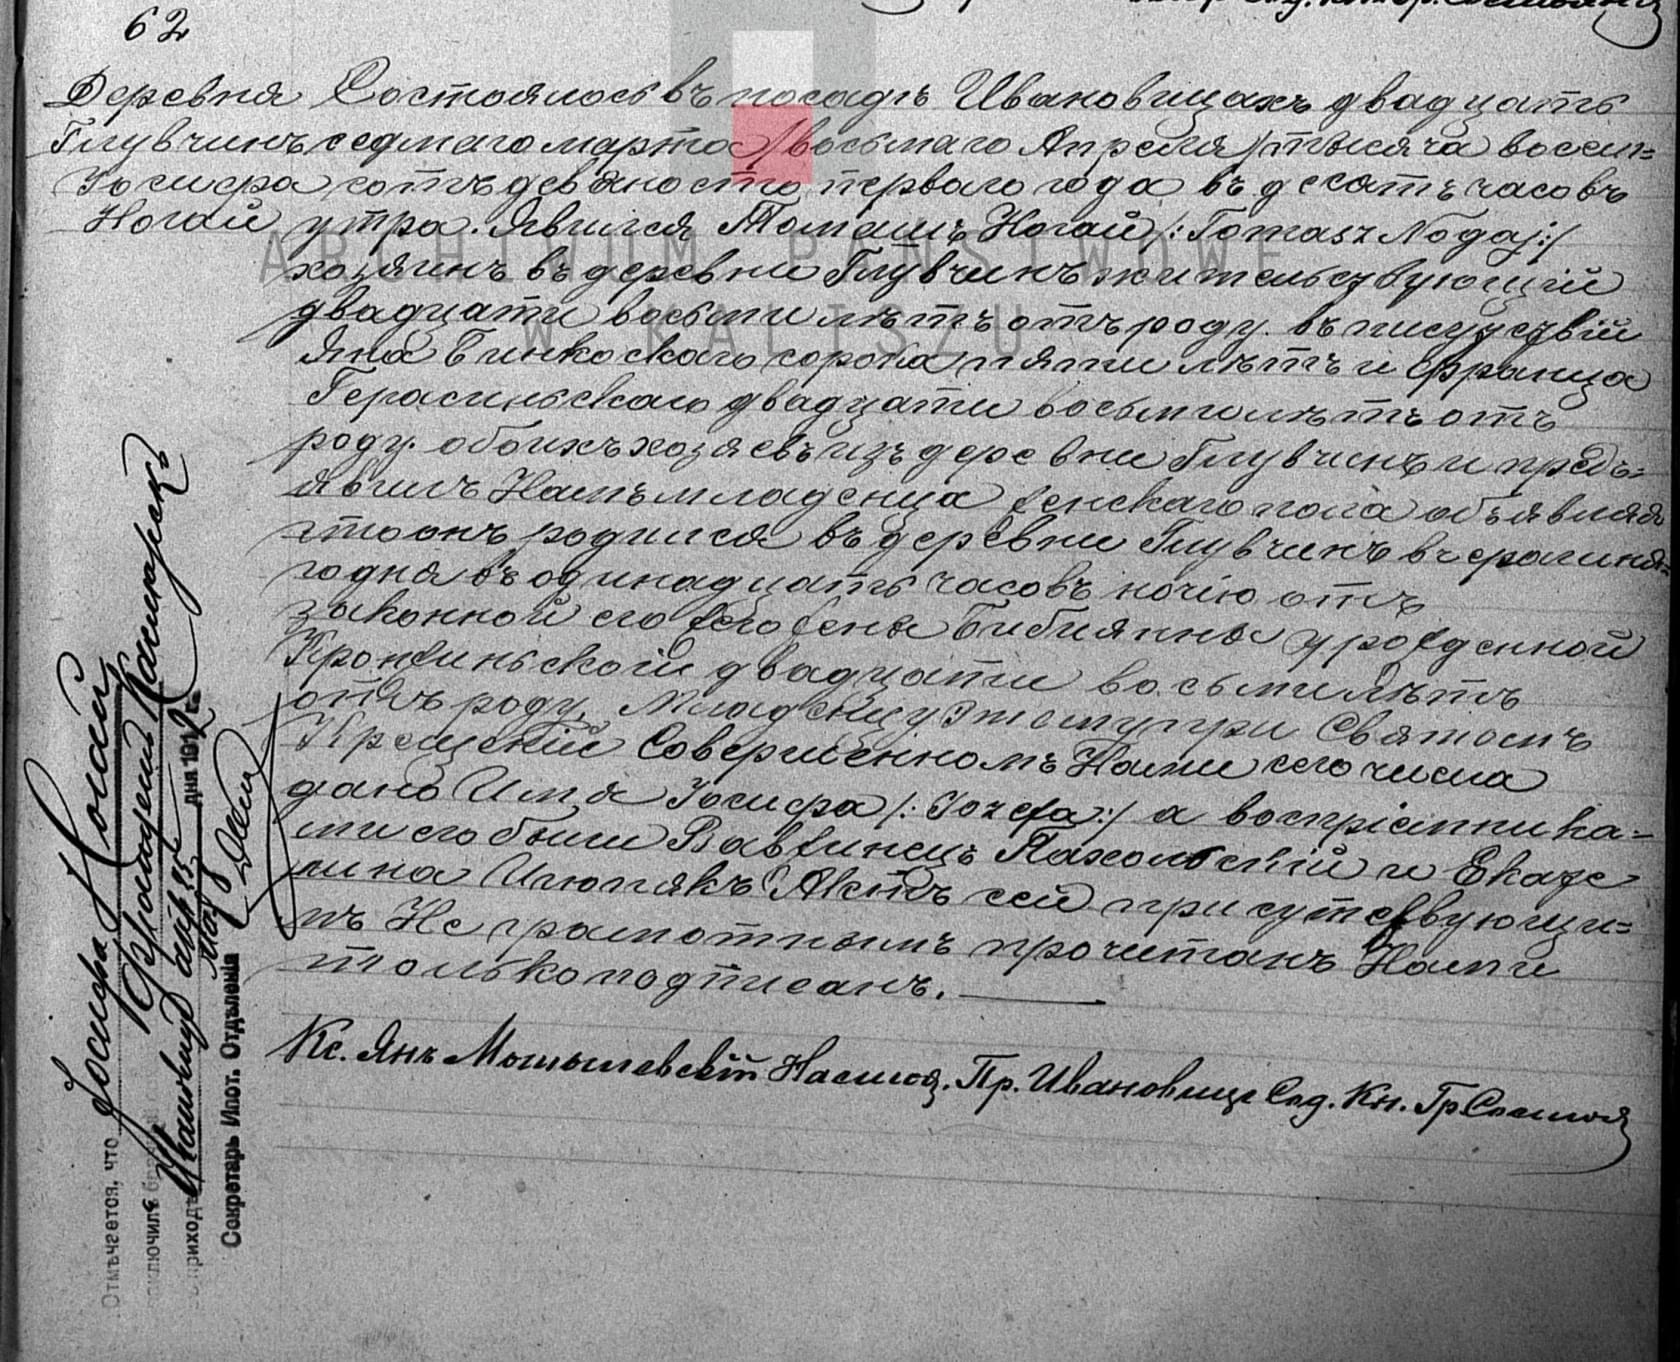 62
Деревня Состоялось въ посадѣ Ивановицахъ двадцать
Глувчинъ седмаго марта /восьмаго Апреля/ тысяча восем=
Іосифа сотъ девяносто перваго года въ десять часовъ
Ногай утра. Явился Томашъ Ногай /: Tomasz Nogaj :/
хозяинъ въ деревни Глувчинъ жительствующій
двадцати восьми лѣтъ отъ роду. въ присуствіи
Яна Бинкоскаго сорока пяти лѣтъ и Франца
Герасинскаго двадцати восьми лѣтъ отъ
роду. обоихъ хозяевъ изъ деревни Глувчинъ и предъ=
явилъ Намъ младенца женскаго пола объявляя
что онъ родился въ деревни Глувчинъ вчерашня=
го дня въ одинадцать часовъ ночію отъ
законной его его жены Бибиянны урожденной
двадцати восьми лѣтъ
отъ роду. Младенцу этому при Святомъ
Крещеніи Совершенномъ Нами сего числа
дано Имя Іосифа /: Iozefa :/ а воспріемника=
ми его были Вавжинецъ Пахольскій и Екате
рина Актъ сей присутствующи=
мъ Не грамотнымъ прочитанъ Нами
только подписанъ.
Кс. Янъ Настоя. Пр. Ивановице Сод. Кн. Гр. Состоя
Отмѣчается, что Іосифа Ногай
заключила бракъ съ
въ приходѣ дня 191
Секретарь Ипот. Отдѣленія
ARCHIWUM PAŃSTWOWE
W KALISZU